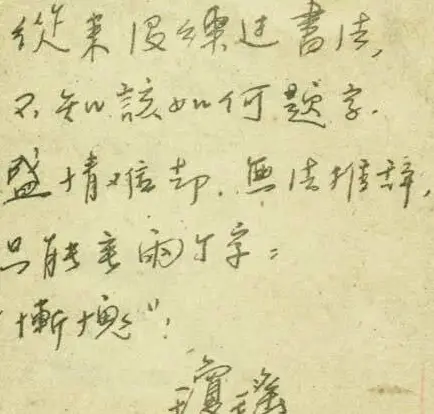 從來沒練过書法,
不知該如何題字.
盛情难却.無法推辞,
只能寫兩个字:
"慚愧"!
瓊瑤